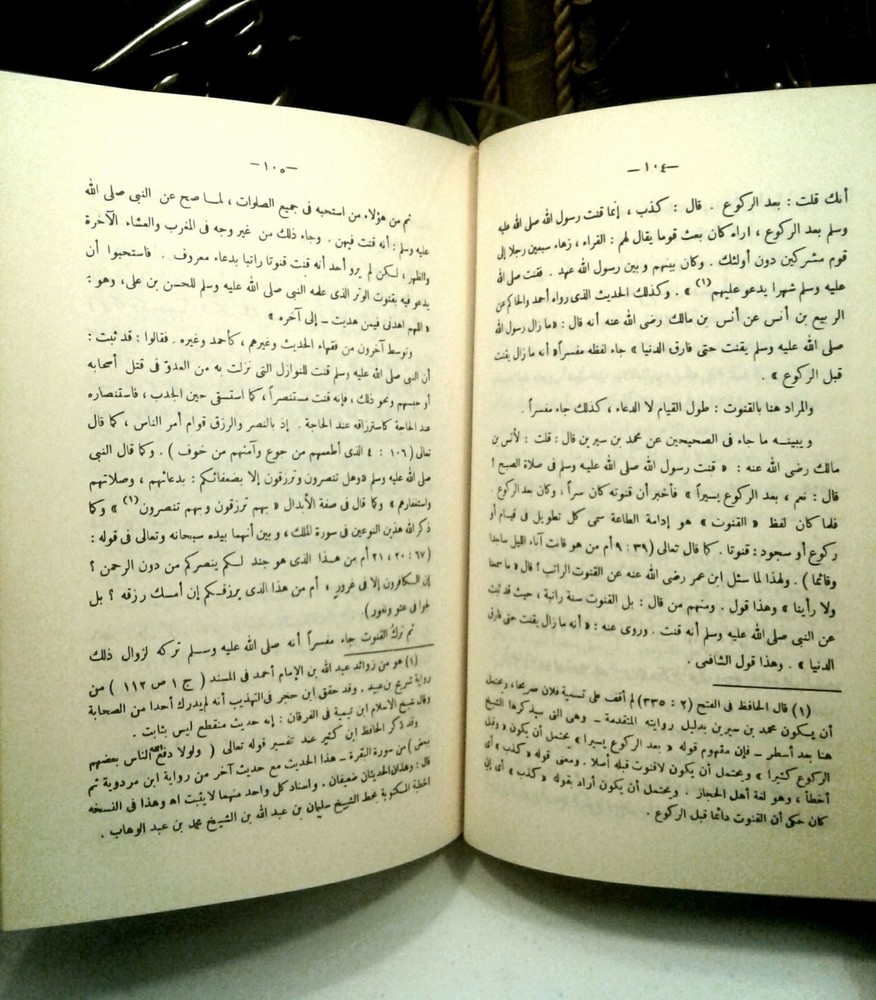 — ١٠٤ —
أنك قلت : بعد الركوع . قال : كذب ، إنما قنت رسول الله صلى الله عليه
وسلم بعد الركوع ، أراه كان بعث قوما يقال لهم : القراء ، زهاء سبعين رجلا إلى
قوم مشركين دون أولئك . وكان بينهم وبين رسول الله عهد . فقنت صلى الله
عليه وسلم شهرا يدعو عليهم (١) » . وكذلك الحديث الذى رواه أحمد والحاكم عن
الربيع بن أنس عن أنس بن مالك رضى الله عنه أنه قال : « ما زال رسول الله
صلى الله عليه وسلم يقنت حتى فارق الدنيا » جاء لفظه مفسراً « أنه ما زال يقنت
قبل الركوع » .
والمراد هنا بالقنوت : طول القيام لا الدعاء ، كذلك جاء مفسراً .
ويبينه ما جاء فى الصحيحين عن محمد بن سيرين قال : قلت : لأنس بن
مالك رضى الله عنه : « قنت رسول الله صلى الله عليه وسلم فى صلاة الصبح ؟
قال : نعم ، بعد الركوع يسيراً » فأخبر أن قنوته كان سراً ، وكان بعد الركوع .
فلما كان لفظ « القنوت » هو إدامة الطاعة سمى كل تطويل فى قيام أو
ركوع أو سجود : قنوتا . كما قال تعالى ( ٣٩ : ٩ أم من هو قانت آناء الليل ساجدا
وقائما ) . ولهذا لما سئل ابن عمر رضى الله عنه عن القنوت الراتب ؟ قال « ما سمعنا
ولا رأينا » وهذا قول . ومنهم من قال : بل القنوت سنة راتبة ، حيث قد ثبت
عن النبي صلى الله عليه وسلم أنه قنت . وروى عنه : « أنه ما زال يقنت حتى فارق
الدنيا » . وهذا قول الشافعى .
(١) قال الحافظ فى الفتح (٢ : ٣٣٥) لم أقف على تسمية فلان صريحا ، ويحتمل
أن يكون محمد بن سيرين بدليل روايته المتقدمة – وهى التى سيذكرها الشيخ
هنا بعد أسطر – فإن مفهوم قوله « بعد الركوع يسيرا » يحتمل أن يكون « وقبل
الركوع كثيرا » ويحتمل أن يكون لا قنوت قبله أصلا . ومعنى قوله « كذب » أى
أخطأ ، وهو لغة أهل الحجاز . ويحتمل أن يكون أراد بقوله « كذب » أى إن
كان حكى أن القنوت دائما قبل الركوع .
— ١٠٥ —
ثم من هؤلاء من استحبه فى جميع الصلوات ، لما صح عن النبى صلى الله
عليه وسلم : أنه قنت فيهن . وجاء ذلك من غير وجه فى المغرب والعشاء الآخرة
والظهر ، لكن لم يرو أحد أنه قنت قنوتا راتبا بدعاء معروف . فاستحبوا أن
يدعو فيه بقنوت الوتر الذى علمه النبى صلى الله عليه وسلم للحسن بن على ، وهو :
« اللهم اهدنى فيمن هديت – إلى آخره »
وتوسط آخرون من فقهاء الحديث وغيرهم ، كأحمد وغيره . فقالوا : قد ثبت :
أن النبى صلى الله عليه وسلم قنت للنوازل التى نزلت به من العدوّ فى قتل أصحابه
أو حبسهم ونحو ذلك ، فإنه قنت مستنصراً ، كما استسقى حين الجدب ، فاستنصاره
عند الحاجة كاسترزاقه عند الحاجة . إذ بالنصر والرزق قوام أمر الناس ، كما قال
تعالى ( ١٠٦ : ٤ الذى أطعمهم من جوع وآمنهم من خوف ) . وكما قال النبى
صلى الله عليه وسلم « وهل تنصرون وترزقون إلا بضعفائكم : بدعائهم ، وصلاتهم
واستغفارهم » وكما قال فى صفة الأبدال « بهم ترزقون وبهم تنصرون (١) » وكما
ذكر الله هذين النوعين فى سورة الملك ، وبين أنهما بيده سبحانه وتعالى فى قوله :
( ٦٧ : ٢٠ ، ٢١ أم من هذا الذى هو جند لكم ينصركم من دون الرحمن ؟
إن الكافرون إلا فى غرور ، أم من هذا الذى يرزقكم إن أمسك رزقه ؟ بل
لجوا فى عتو ونفور ) .
ثم ترك القنوت جاء مفسراً أنه صلى الله عليه وسلم تركه لزوال ذلك
(١) هو من زوائد عبد الله بن الإمام أحمد فى المسند ( ج ١ ص ١١٢ ) من
رواية شريح بن عبيد . وقد حقق ابن حجر فى التهذيب أنه لم يدرك أحدا من الصحابة
وقال شيخ الاسلام ابن تيمية فى الفرقان : إنه حديث منقطع ليس بثابت .
وقد ذكر الحافظ ابن كثير عند تفسير قوله تعالى ( ولولا دفع الله الناس بعضهم
ببعض ) من سورة البقرة – هذا الحديث مع حديث آخر من رواية ابن مردوية ثم
قال : وهذان الحديثان ضعيفان . واسناد كل واحد منهما لا يثبت اه وهذا فى النسخه
الخطية المكتوبة بخط الشيخ سليمان بن عبد الله بن الشيخ محمد بن عبد الوهاب .